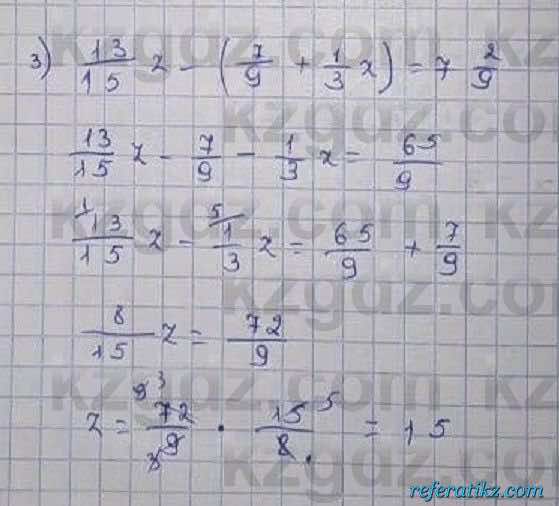 3) 13/15 z - (7/9 + 1/3 z) = 7 2/9
13/15 z - 7/9 - 1/3 z = 65/9
1 13/15 z - 5 1/3 z = 65/9 + 7/9
8/15 z = 72/9
z = 9 3 72/9 3 · 15 5/8 = 15
kzgdz.com
referatikz.com